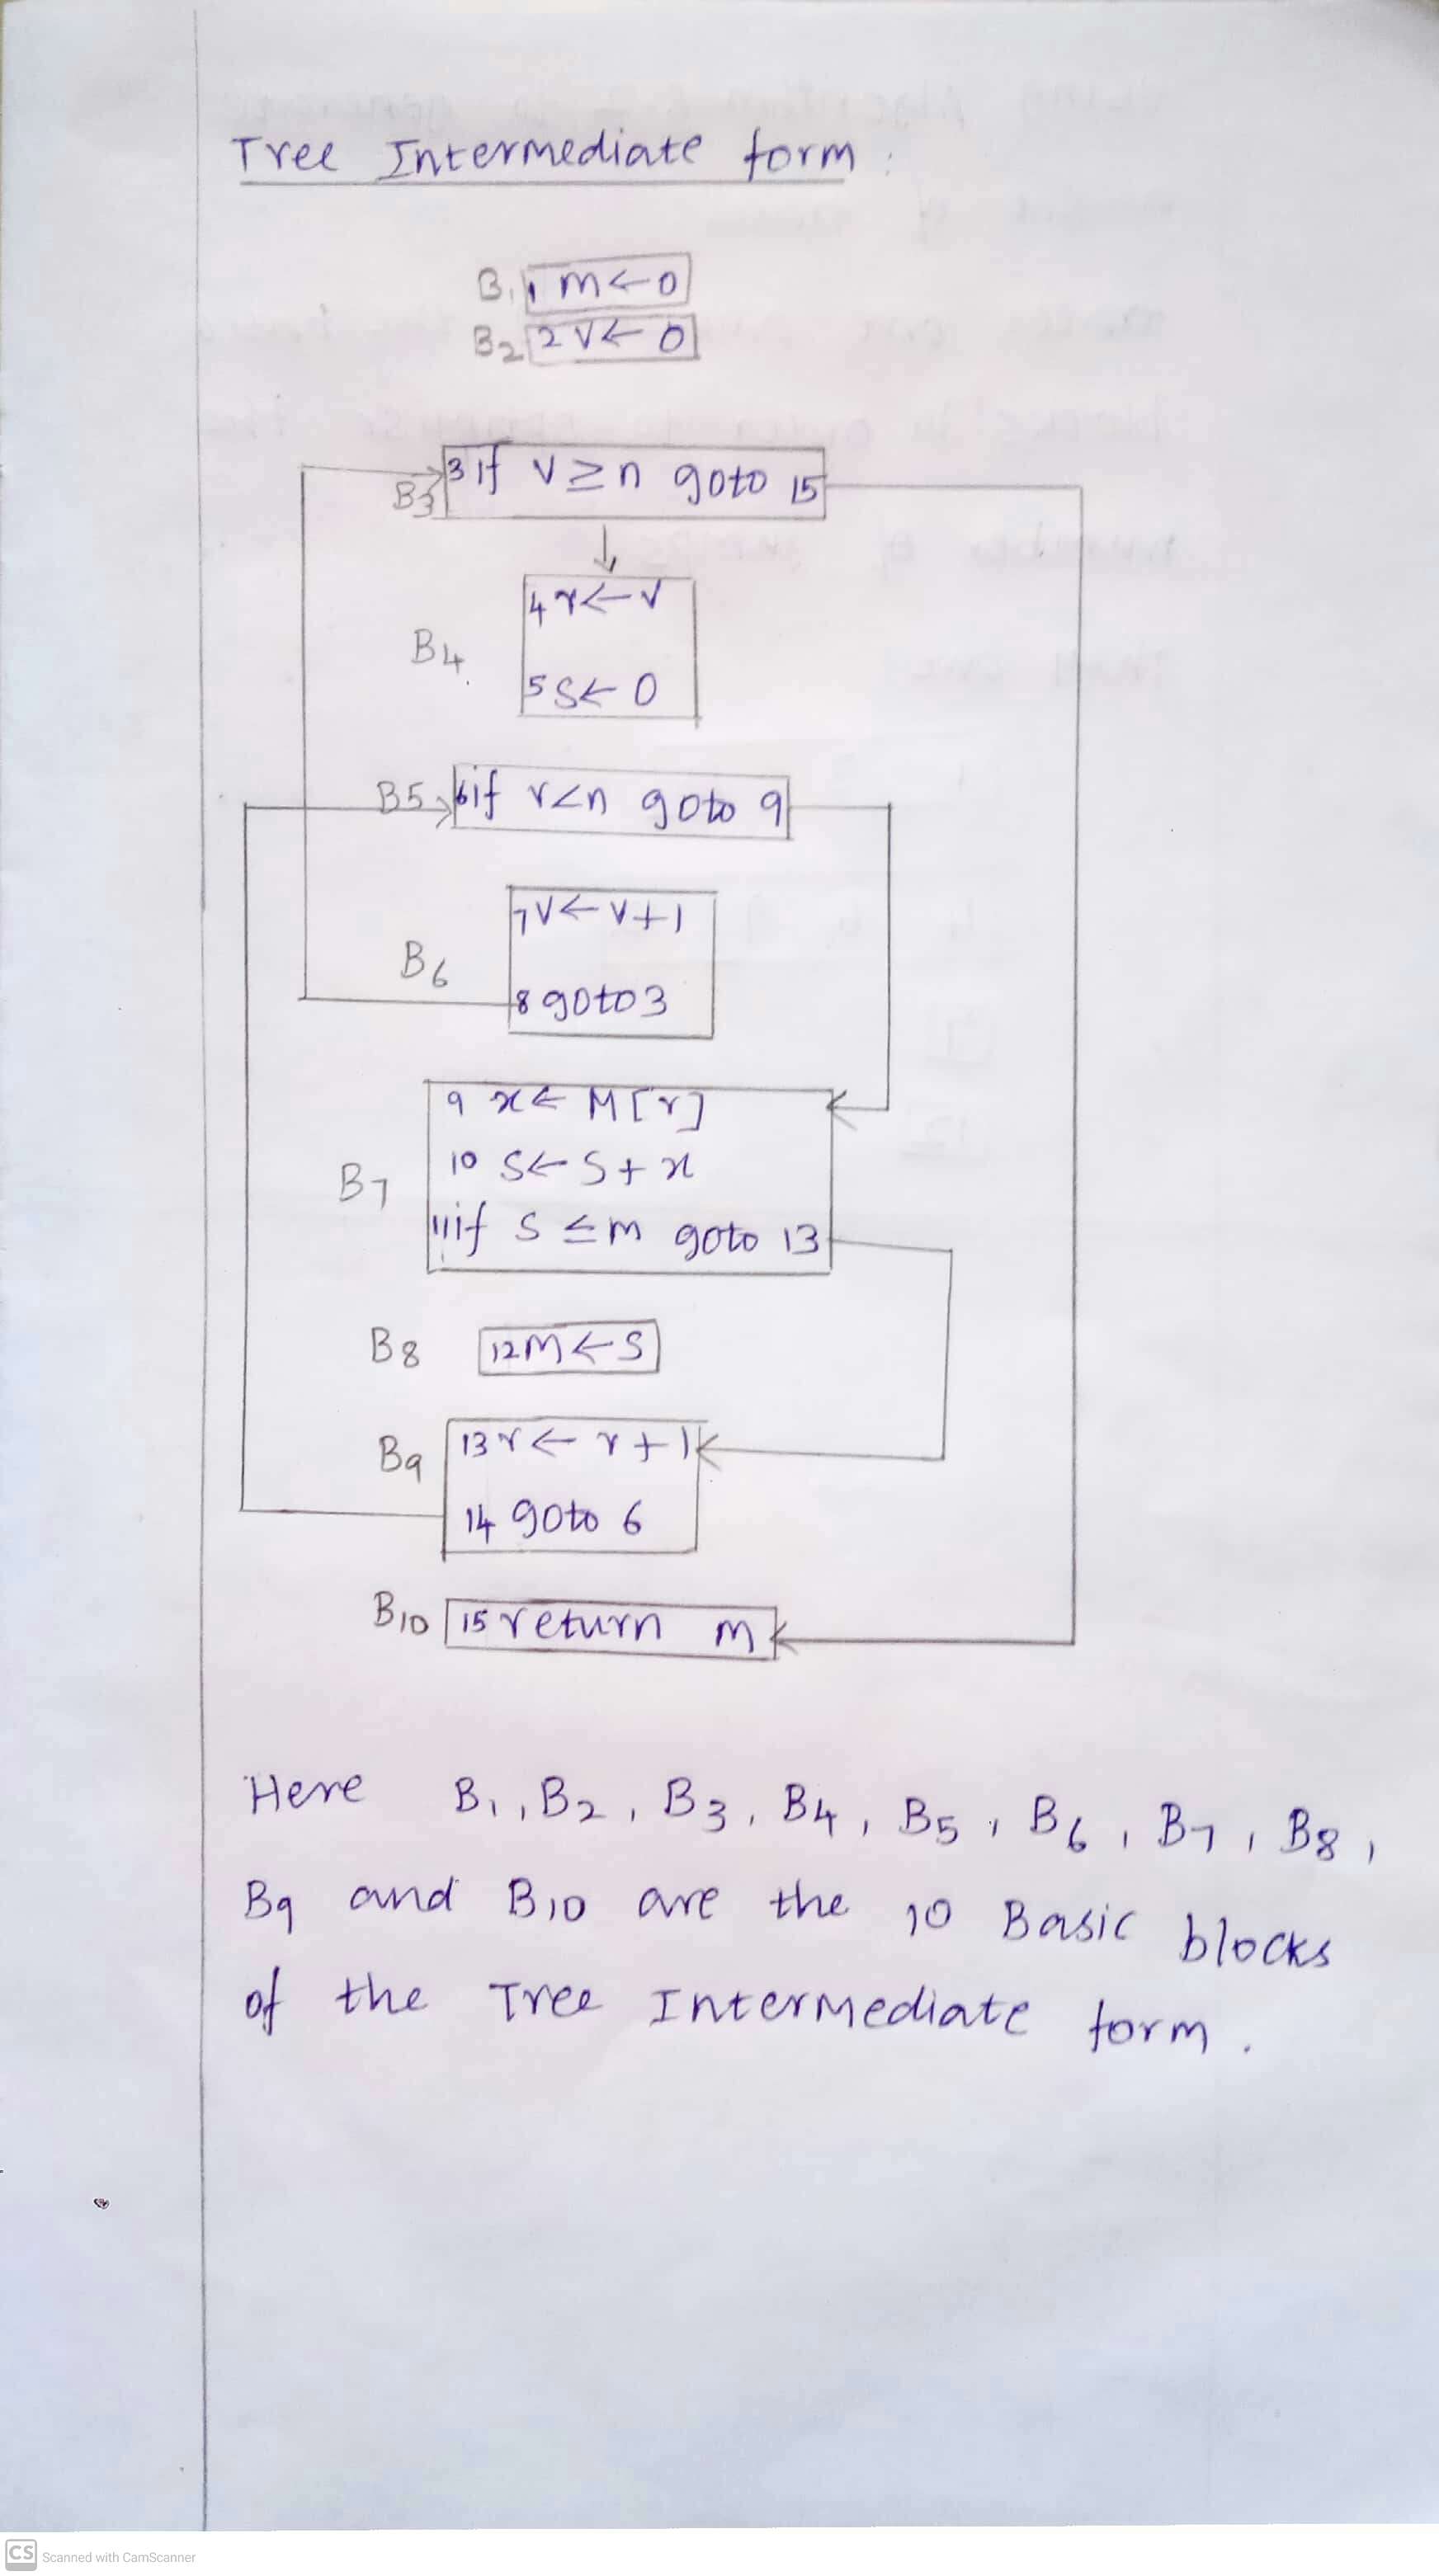 Tree Intermediate form:
B1 1 m ← 0
B2 2 v ← 0
B3 3 if v ≥ n goto 15
4 r ← v
B4
5 s ← 0
B5 6 if r < n goto 9
7 v ← v + 1
B6
8 goto 3
9 x ← M[r]
10 s ← s + x
B7
11 if s ≤ m goto 13
B8 12 m ← s
B9 13 r ← r + 1
14 goto 6
B10 15 return m
Here B1, B2, B3, B4, B5, B6, B7, B8,
B9 and B10 are the 10 Basic blocks
of the Tree Intermediate form.
CS Scanned with CamScanner